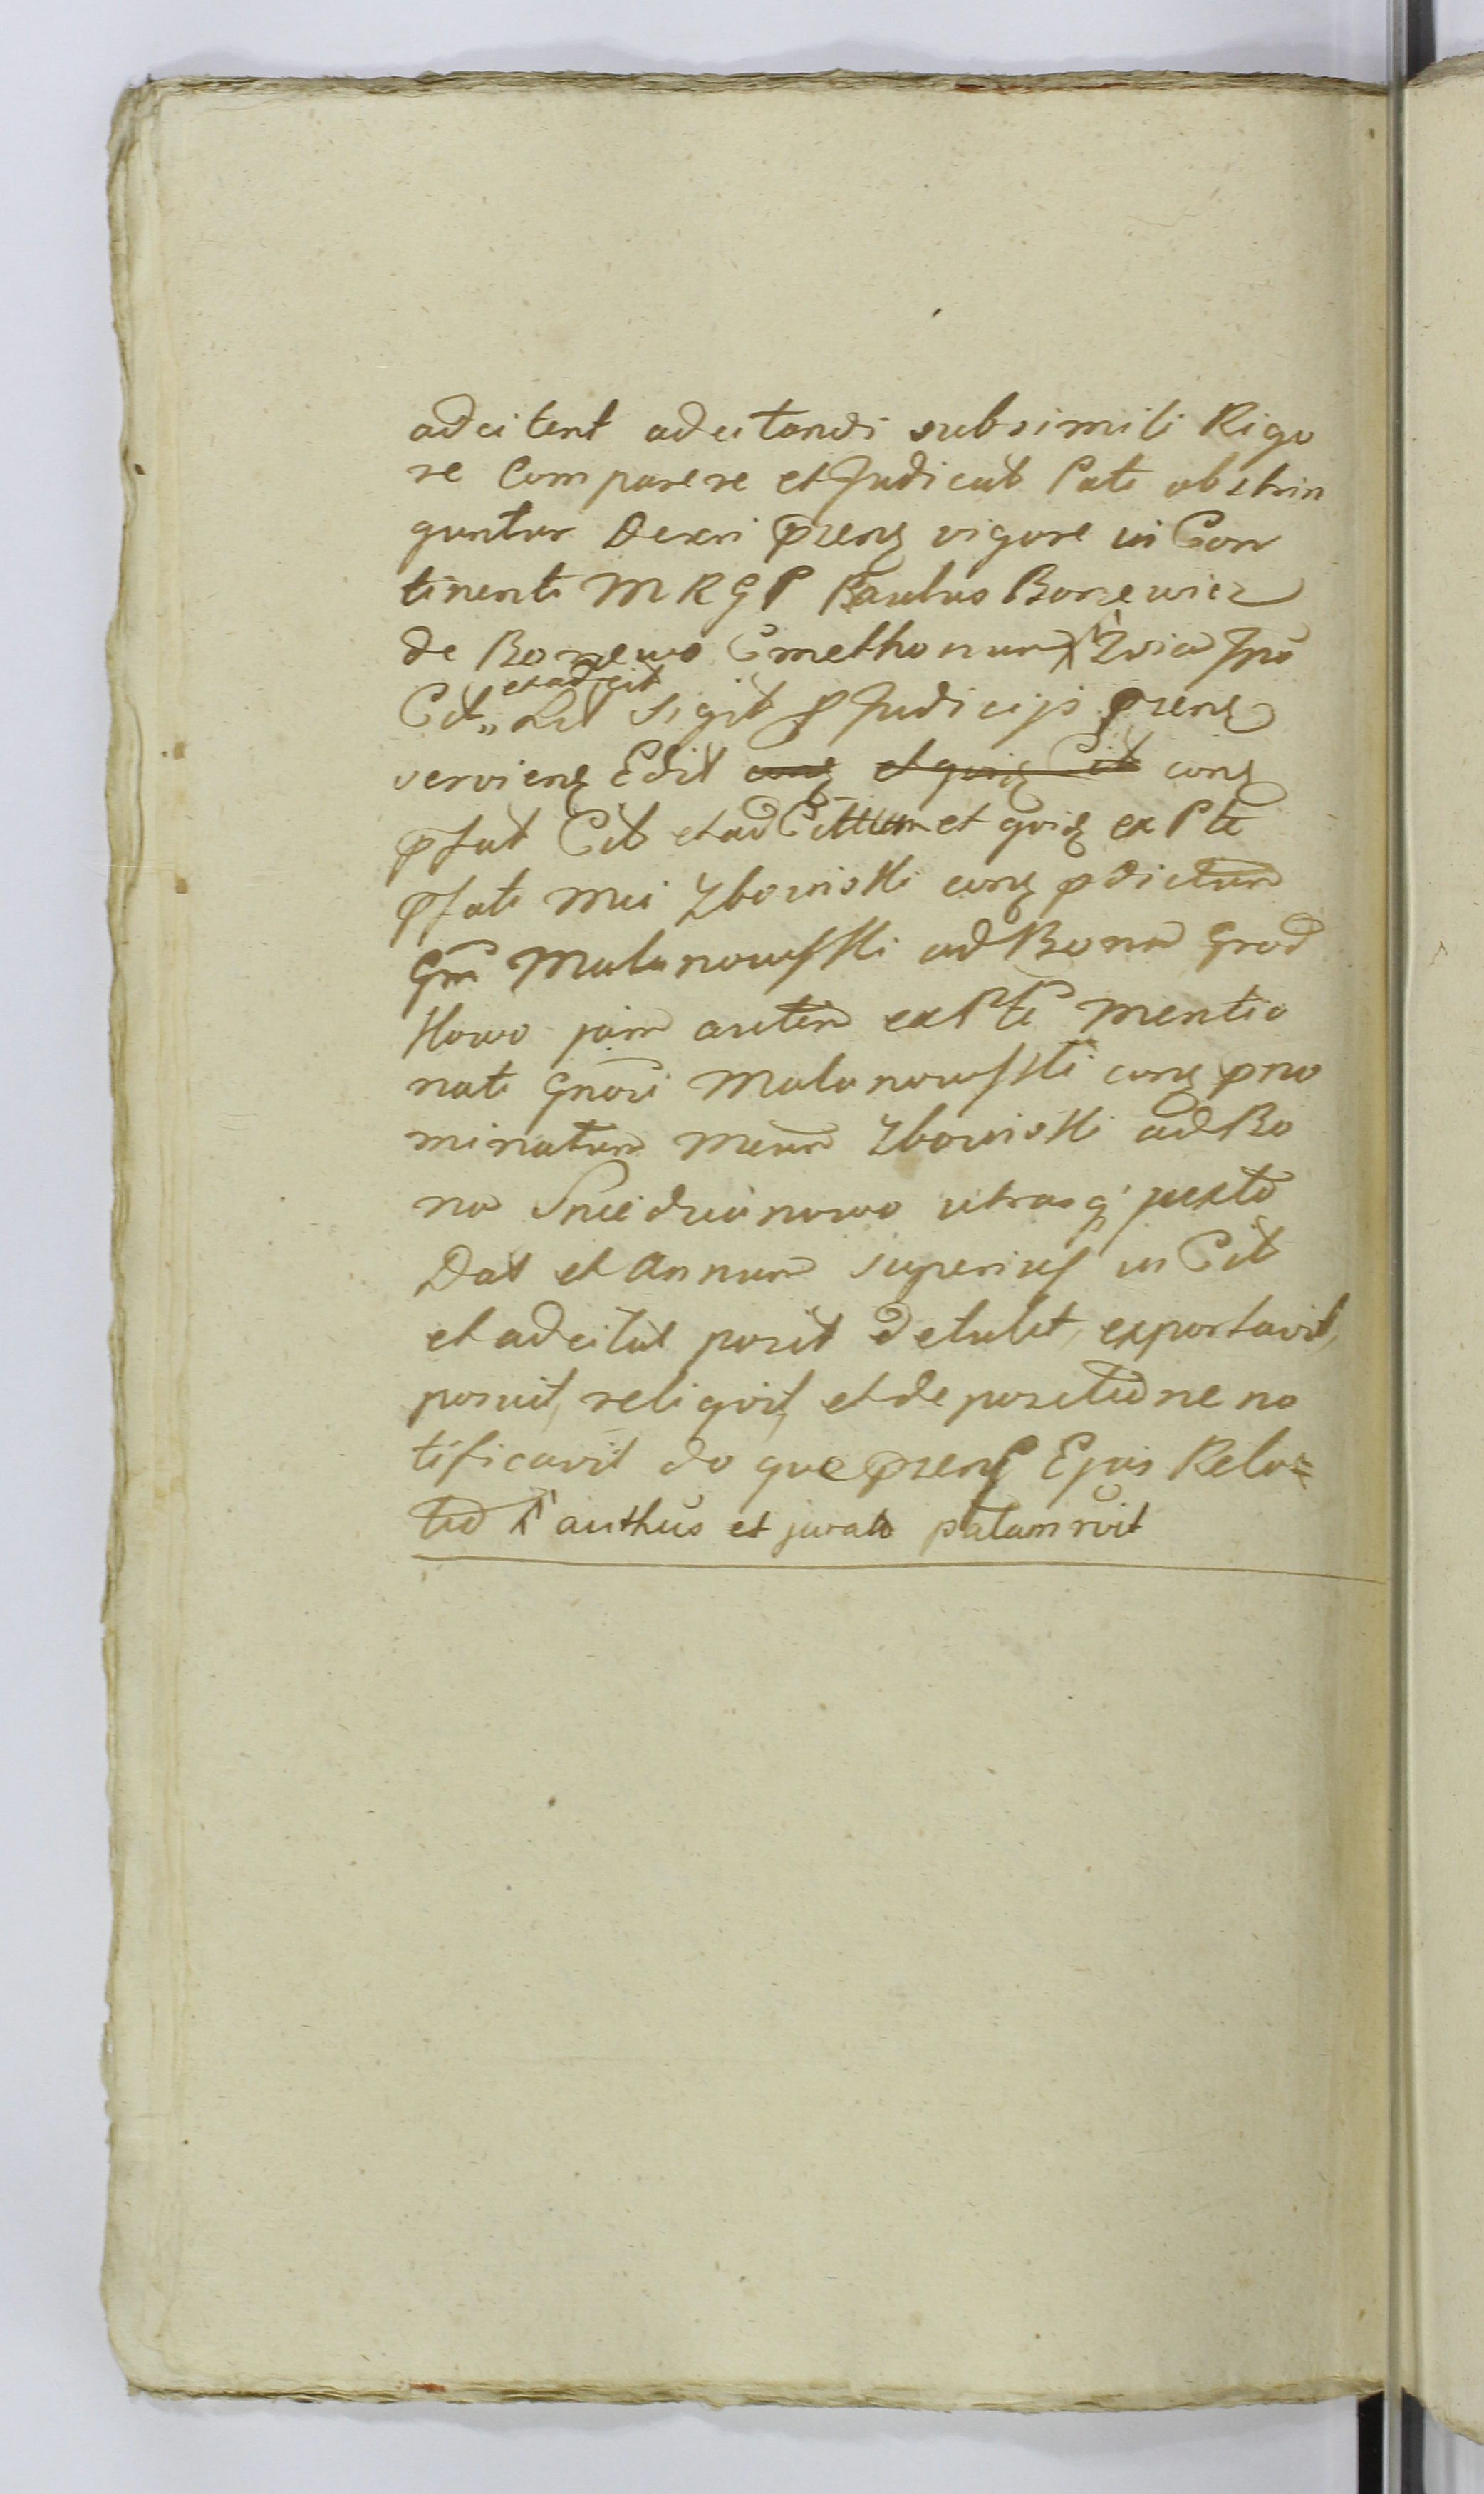 adcitent adcitandi subsimili Rigo
re Comparere et Judicat Pati obstrin
guntur Decri pręns vigore in Con
tinenti M R G P Paulus Borzewicz
de Borzewo Cmethonum
et adcit
Cit„ Lit Sigit p Judicijs pręns
serviens Edit cons et quid Cit cons
pfat Cit et ad Cittum et quid ex Pte
pfati Mci Zboinski cons pdictum
Gm Malanowsski ad Bona Grod
kowo jam autem ex Pte mentio
nati Gnosi Malanowsski cons pno
minatum Mcum Zboinski ad Bo
na Sniedzianowo utrasq juxta
Dat et Annum superius in Cit
et adcitat posit detulit, exportavit,
posuit, reliqvit, et de positione no
tificavit do que prens Ejus Rela=
tio authus et jurato palam